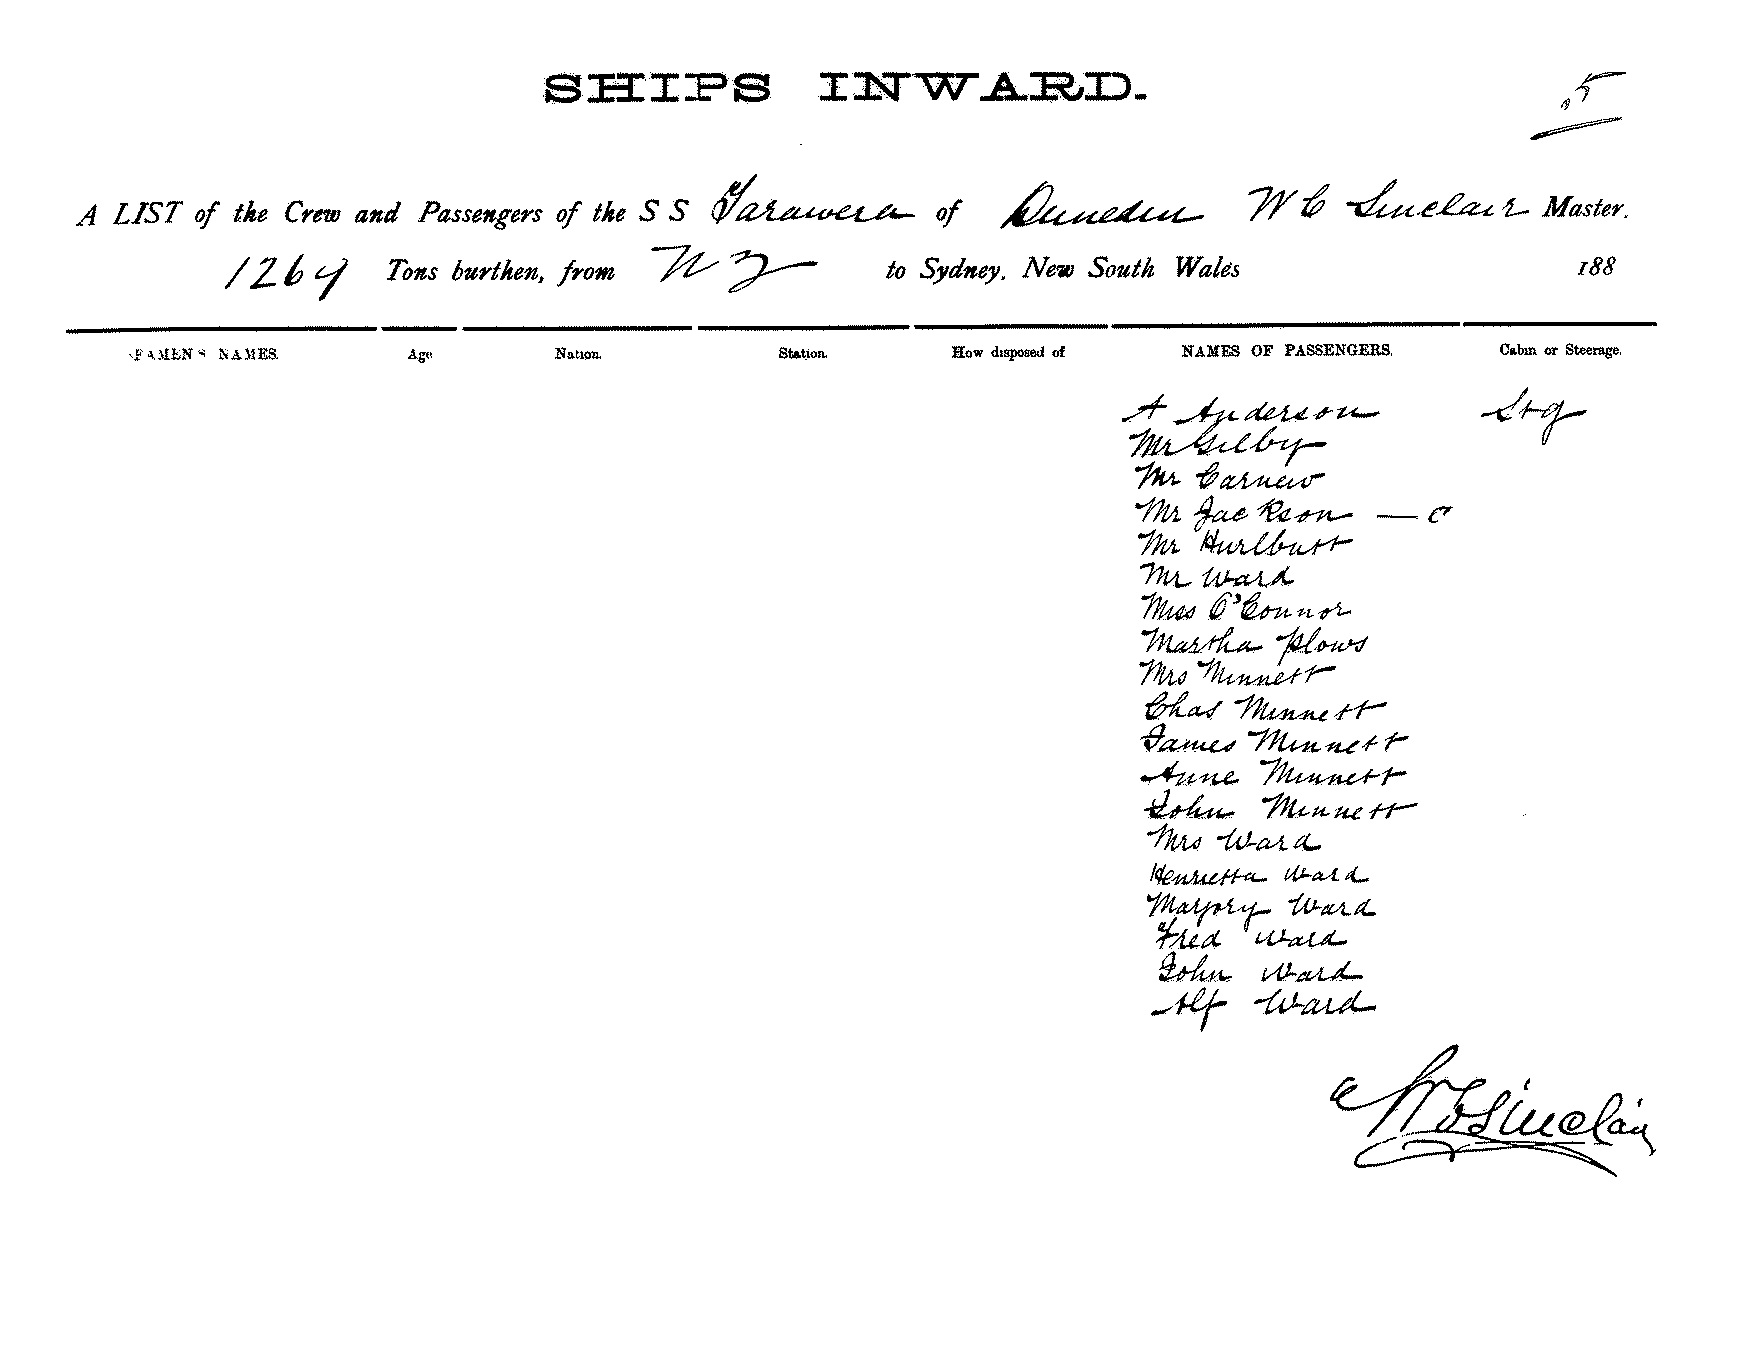 SHIPS INWARD.
5
A LIST of the Crew and Passengers of the S S Tarawera of Dunedin W C Sinclair Master.
1269 Tons burthen, from N Z to Sydney, New South Wales 188
SEAMEN'S NAMES. Age Nation. Station. How disposed of NAMES OF PASSENGERS. Cabin or Steerage.
A Anderson Stg
Mr Gilby
Mr Carnew
Mr Jackson — c
Mr Hurlbutt
Mr Ward
Miss O'Connor
Martha Plows
Mrs Minnett
Chas Minnett
James Minnett
Anne Minnett
John Minnett
Mrs Ward
Henrietta Ward
Marjory Ward
Fred Ward
John Ward
Alf Ward
W C Sinclair